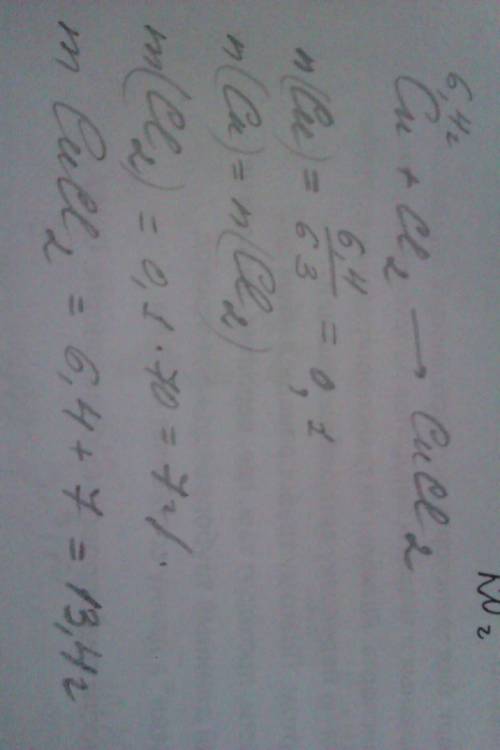 6,4г
Cu + Cl₂ → CuCl₂
n(Cu) = 6,4/63 = 0,1
n(Cu) = n(Cl₂)
m(Cl₂) = 0,1 · 70 = 7г.
m CuCl₂ = 6,4 + 7 = 13,4г